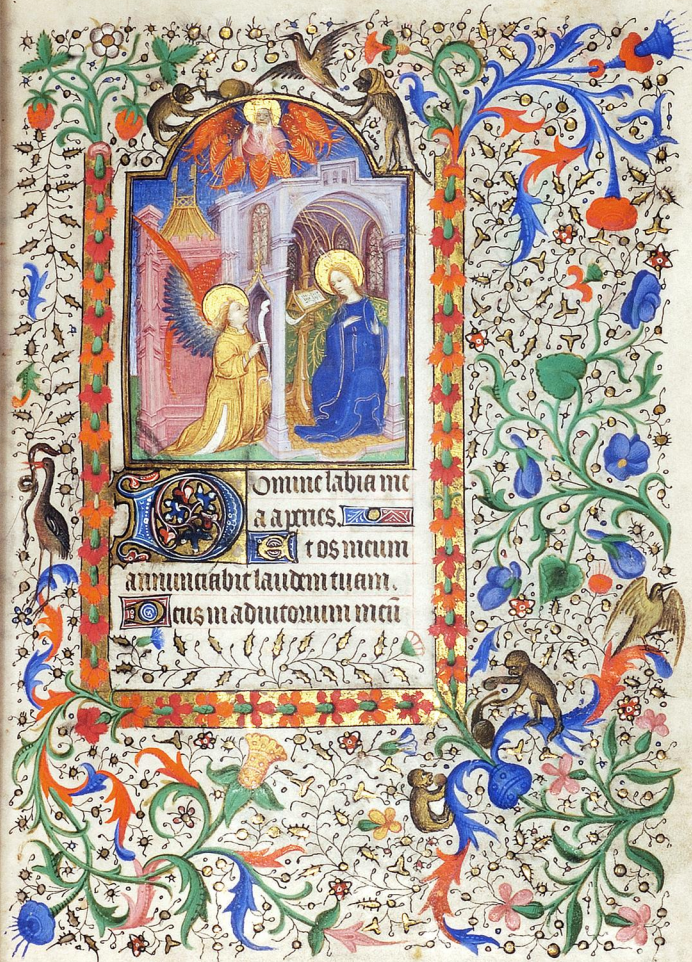 Domine labia me
a aperies.
Et os meum
annunciabit laudem tuam.
Deus in adiutorium meu̅